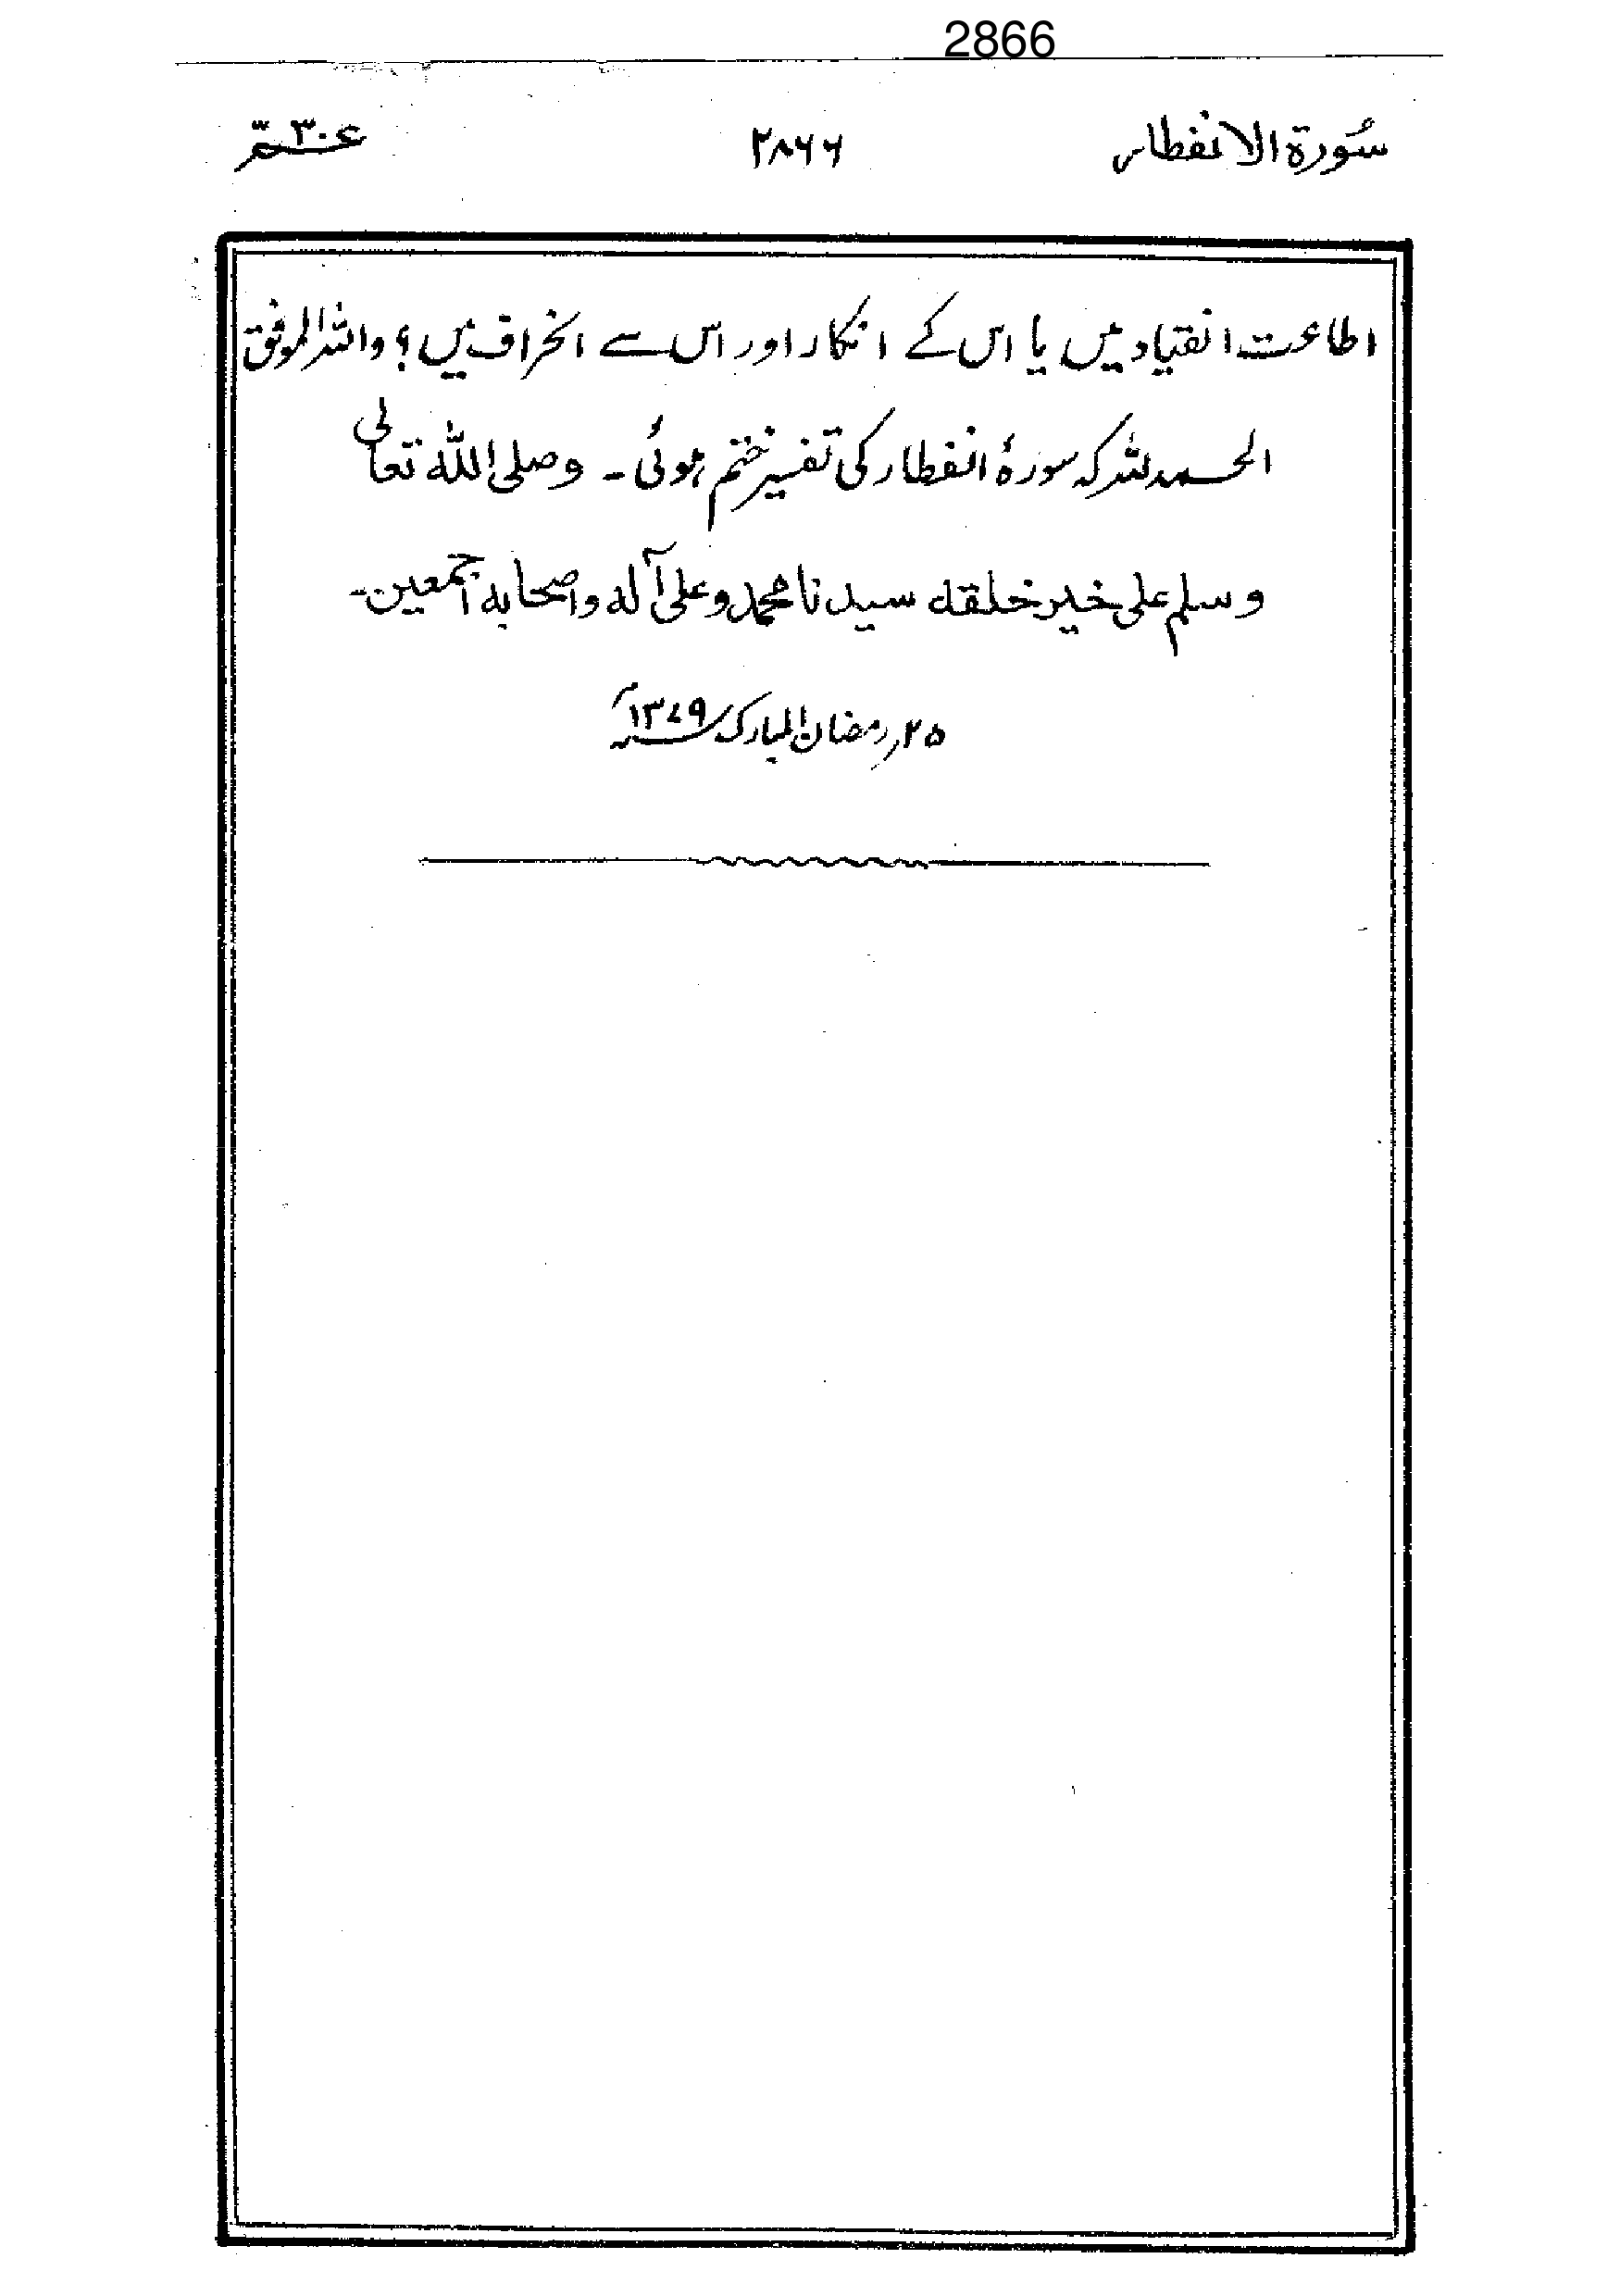 2866
سُورة الانفطار ۲۸۶۶ عمّ ۳۰
اطاعت انقیاد میں یا اس کے انکار اور اس سے انحراف میں؟ واللہ الموفق
الحمد للہ کہ سورۂ انفطار کی تفسیر ختم ہوئی۔ وصلی اللہ تعالی
وسلم علی خیر خلقہ سیدنا محمد وعلی آلہ واصحابہ اجمعین۔
۲۵؍ رمضان المبارک ۱۳۷۹ھ